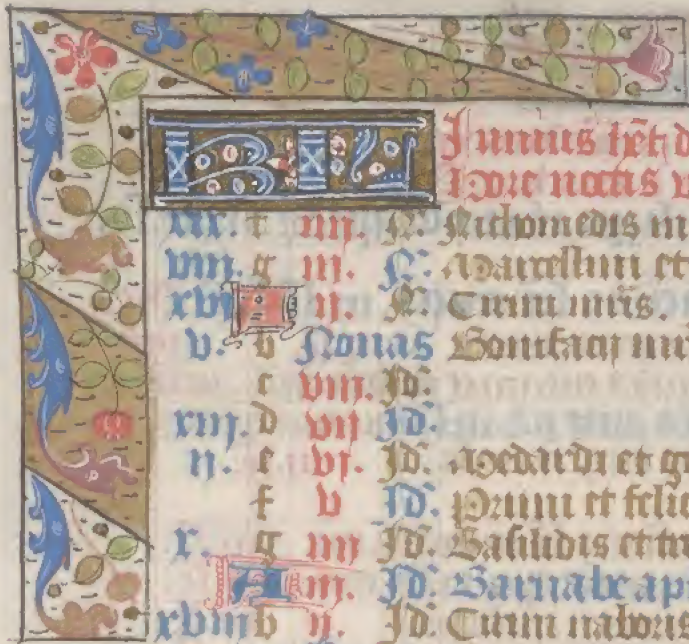 KL Junius het d
Hore noctis v
xix. f iiij. N. Nichomedis m
viij. g iij. N. Marcellini et
xvj A ij. N. Cirini mris.
v. b Nonas Bonifacij mr
c viij. Jd.
xiij. d vij Jd.
ij. e vj. Jd. Medardi et g
f v Jd. Primi et felic
x. g iiij Jd. Basilidis et tr
A iij. Jd. Barnabe ap
xviij b ij. Jd. Cirini naboris